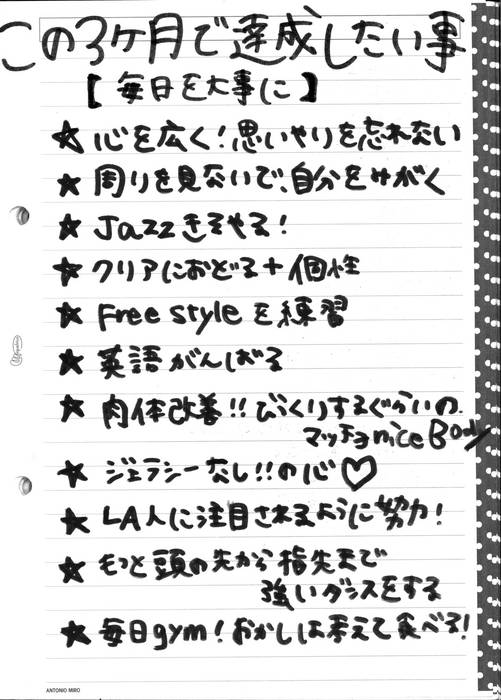 この3ケ月で達成したい事
【毎日を大事に】
★心を広く!思いやりを忘れない
★周りを見ないで、自分をみがく
★Jazzきそやる!
★クリアにおどる+個性
★Free styleを練習
★英語がんばる
★肉体改善!!びっくりするぐらいの
マッチョnice Body
★ジェラシーなし!!の心♡
★LA人に注目されるように努力!
★もっと頭の先から指先まで
強いダンスをする
★毎日gym!おかしは考えて食べる!
ANTONIO MIRO